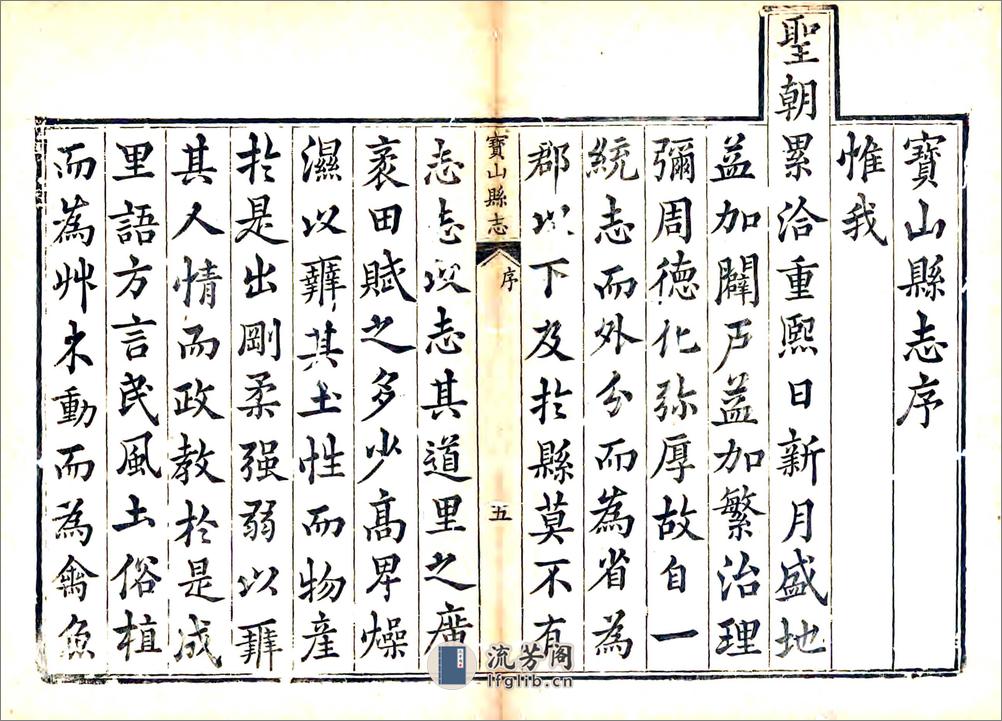 寶山縣志序
惟我
聖朝累洽重熙日新月盛地
益加闢戸益加繁治理
彌周德化弥厚故自一
統志而外分而為省為
郡以下及於縣莫不有
寶山縣志
序
五
志志以志其道里之廣
袤田賦之多少高卑燥
濕以辨其土性而物產
於是出剛柔强弱以辨
其人情而政教於是成
里語方言民風土俗植
而為艸木動而為禽魚
流芳阁
lfglib.cn